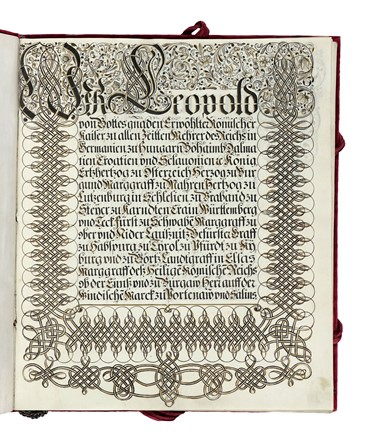 Wir Leopold
von Gottes gnaden Erwöhlter Römischer
Kaiser zu allen Zeitten Mehrer des Reichs in
Germanien zu Hungarn Böhaimb Dalma
tien Croatien und Sclavonien &c König
Ertzhertzog zu Osterreich Hertzog zu Bur
gund Marggraff zu Mähren Hertzog zu
Lutzenburg in Schlesien zu Braband zu
Steyer zu Kärndten Crain Würtemberg
und Teck Fürst zu Schwabē Marggraff zu
ober und Nider Laußnitz Gefürster Graff
zu Habspurg zu Tyrol zu Pfürdt zu Ky
burg und zu Görtz Landtgraff in Elsas
Marggraff des Heilige Römische Reichs
ob der Enns und zu Burgaw Herr auf der
Windischē Marck zu Portenaw und Salins